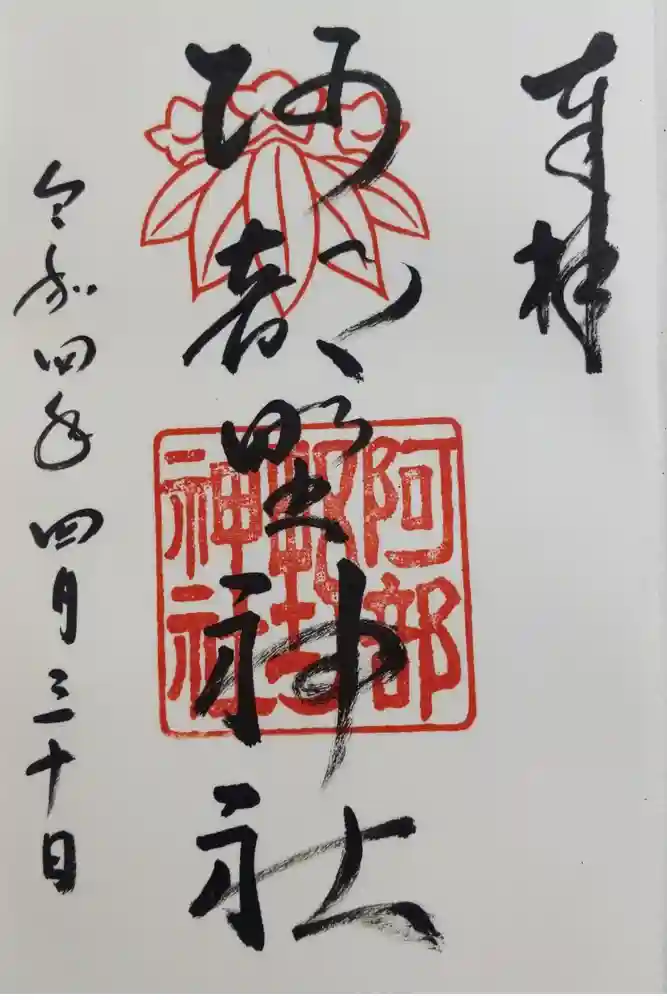 奉拝
阿部野神社
阿部
野
神社
令和四年四月三十日